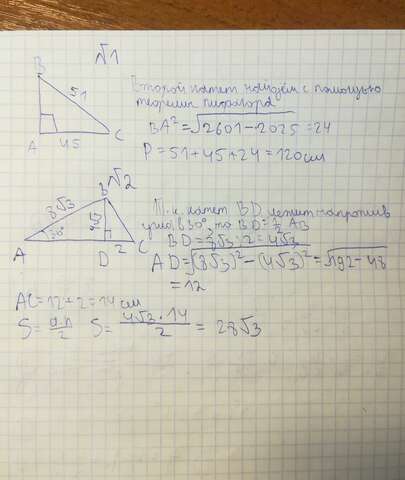 №1
B
51
A 45 C
Второй катет найдём с помощью
теоремы пифагора
BA² = √2601 - 2025 = 24
P = 51 + 45 + 24 = 120 см
№2
B
8√3
30°
4√3
A D 2 C
Т.к. катет BD лежит напротив
угла в 30°, то BD = ½ AB
BD = 8√3 : 2 = 4√3
AD = √(8√3)² - (4√3)² = √192 - 48
= 12
AC = 12 + 2 = 14 см
S = a·h/2 S = 4√3 · 14/2 = 28√3